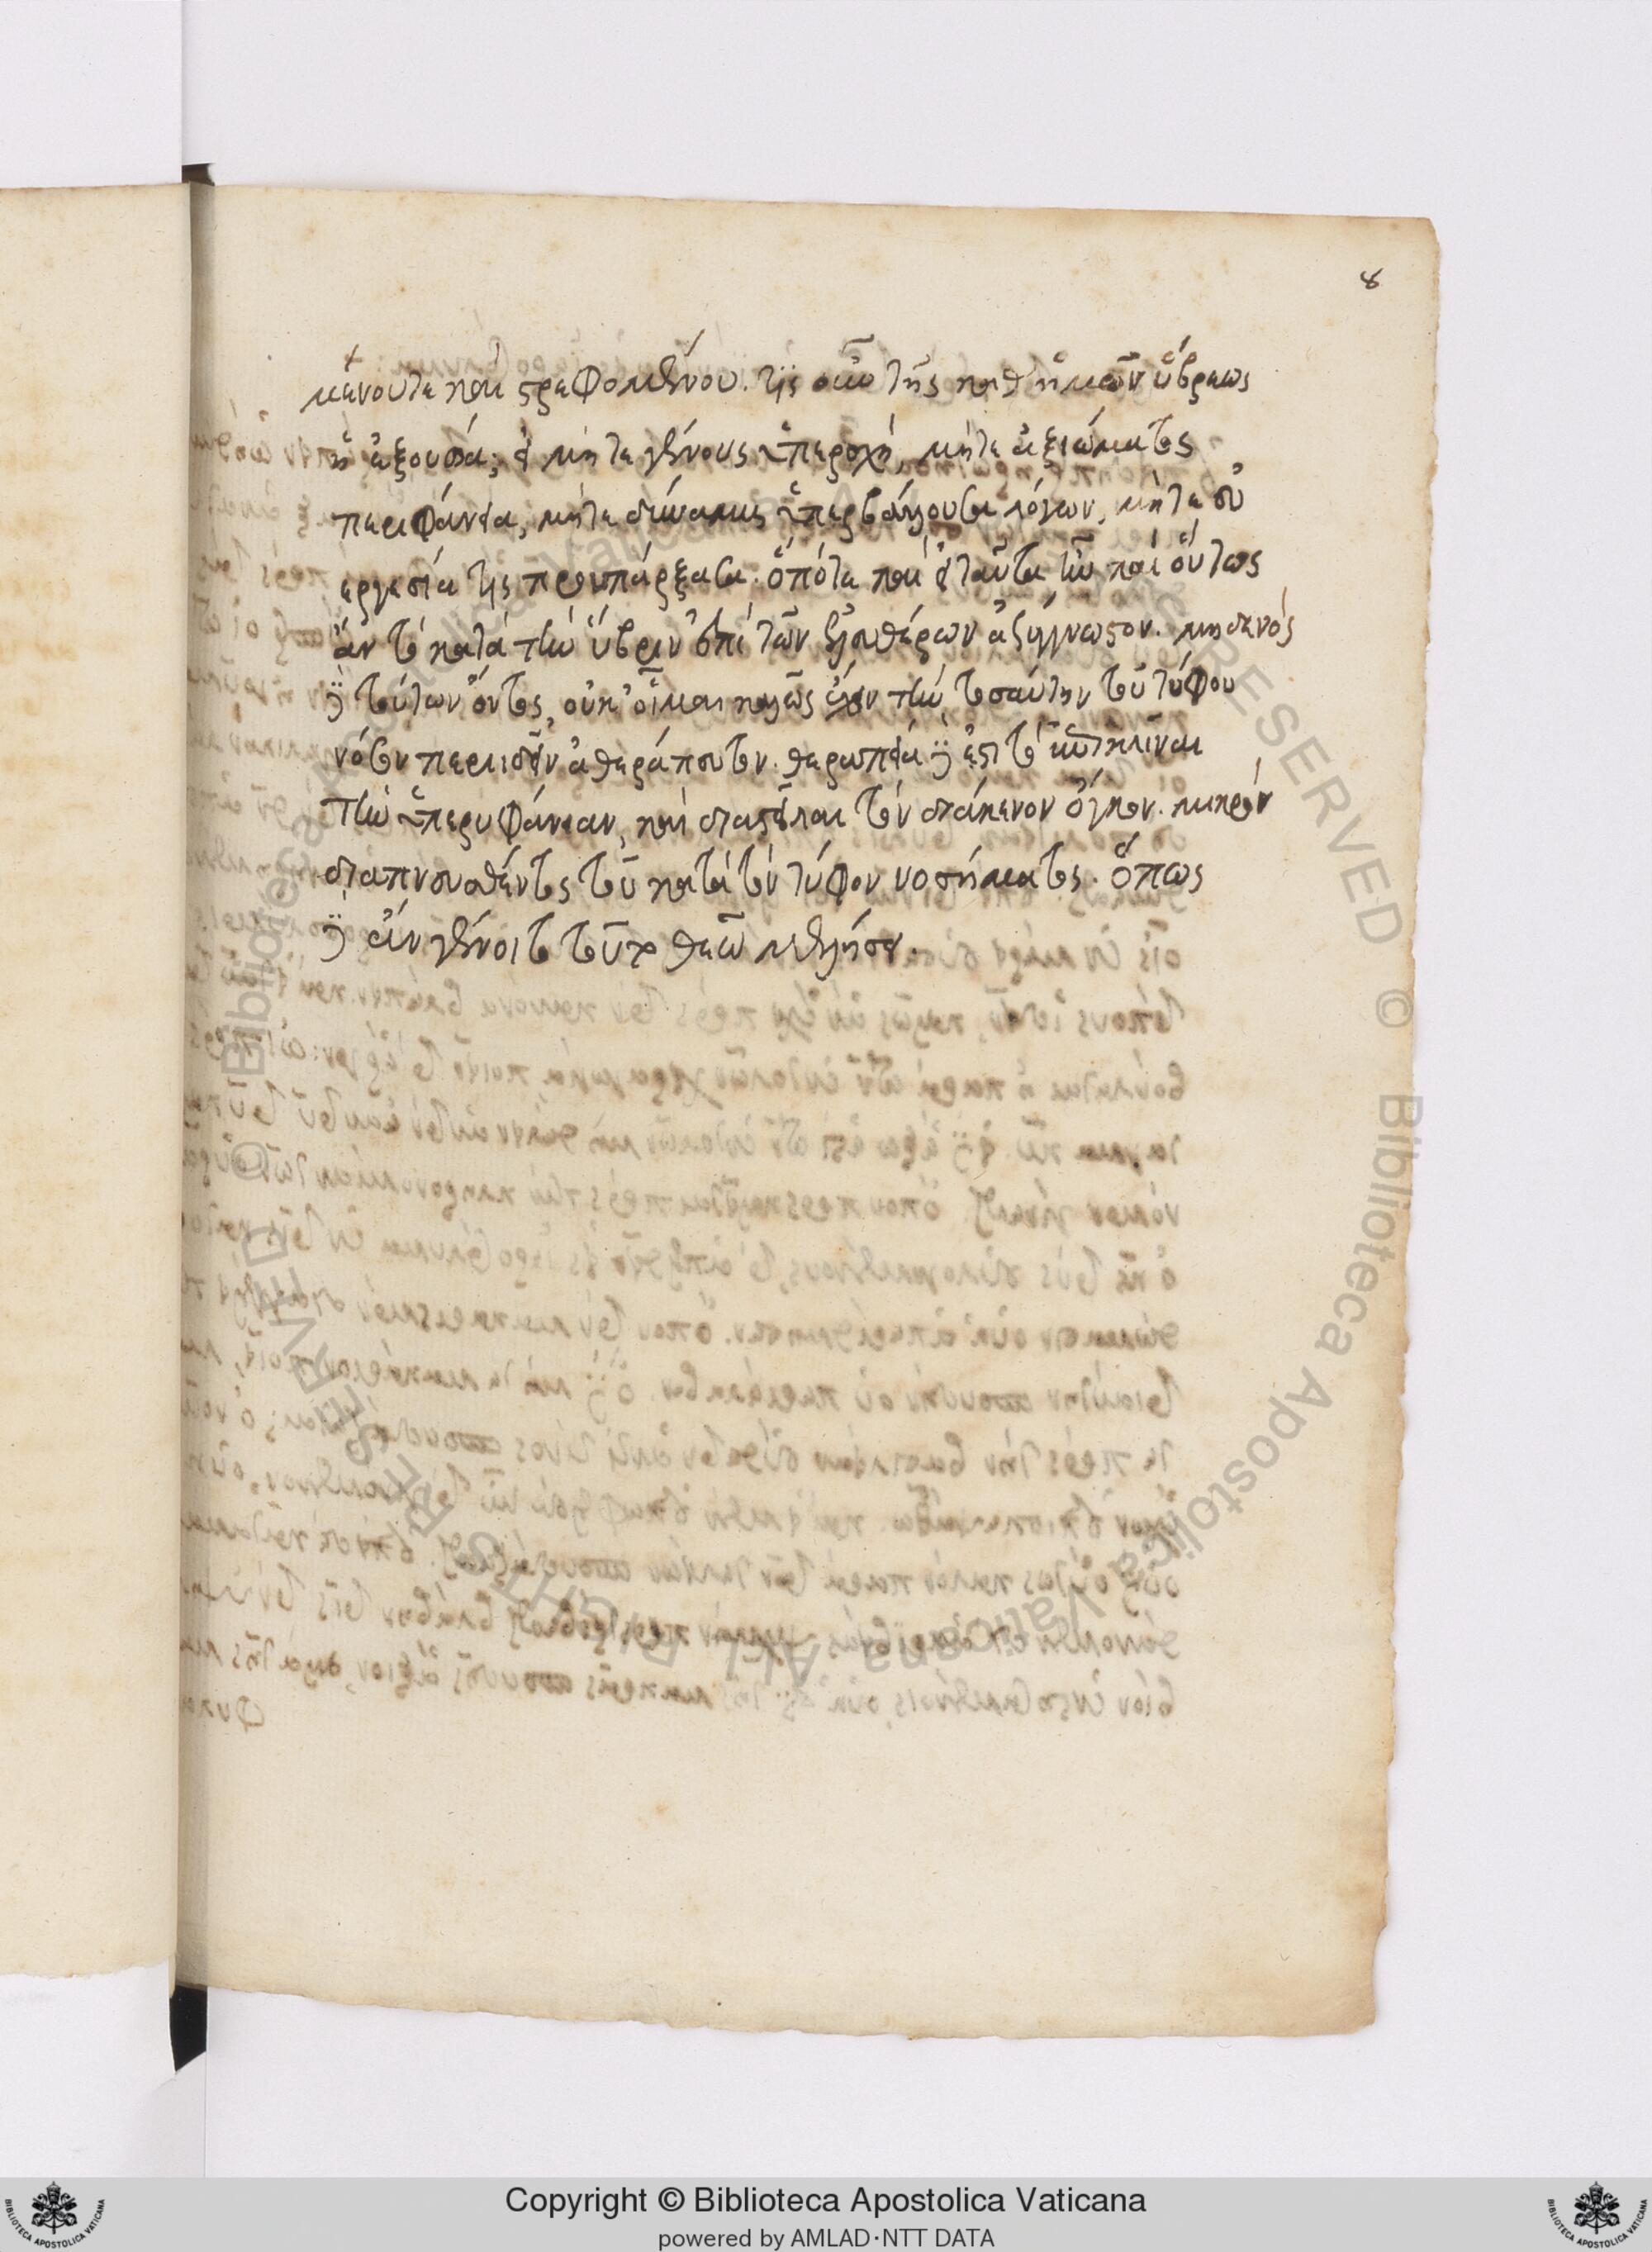 8
μένουτε καὶ στρεφομένου. τίς οὖν τῆς καθ' ἡμῶν ὕβρεως
ἡ ἐξουσία; εἰ μήτε γένους ὑπεροχή, μήτε ἀξιώματος
περιφάνεια, μήτε δύναμις ὑπερβάλλουσα λόγων, μήτε εὐ
εργεσία τις προυπάρξασα. ὁπότε καὶ εἰ ταῦτα ἦν καὶ οὕτως
ἂν τὸ κατὰ τὴν ὕβριν ἐπὶ τῶν ἐλευθέρων ἀσύγγνωστον. μηδενὸς
δὲ τούτων ὄντος, οὐκ οἶμαι καλῶς ἔχειν τὴν τοσαύτην τοῦ τύφου
νόσον περιιδεῖν ἀθεράπευτον. θεραπεία δέ ἐστι τὸ κατακλῖναι
τὴν ὑπερηφάνειαν, καὶ διαστεῖλαι τὸν διάκενον ὄγκον. μικρὸν
διαπνευσθέντος τοῦ κατὰ τὸν τύφον νοσήματος. ὅπως
δ' ἂν γένοιτο τοῦτο θεῷ μελήσει.
Copyright © Biblioteca Apostolica Vaticana
powered by AMLAD·NTT DATA